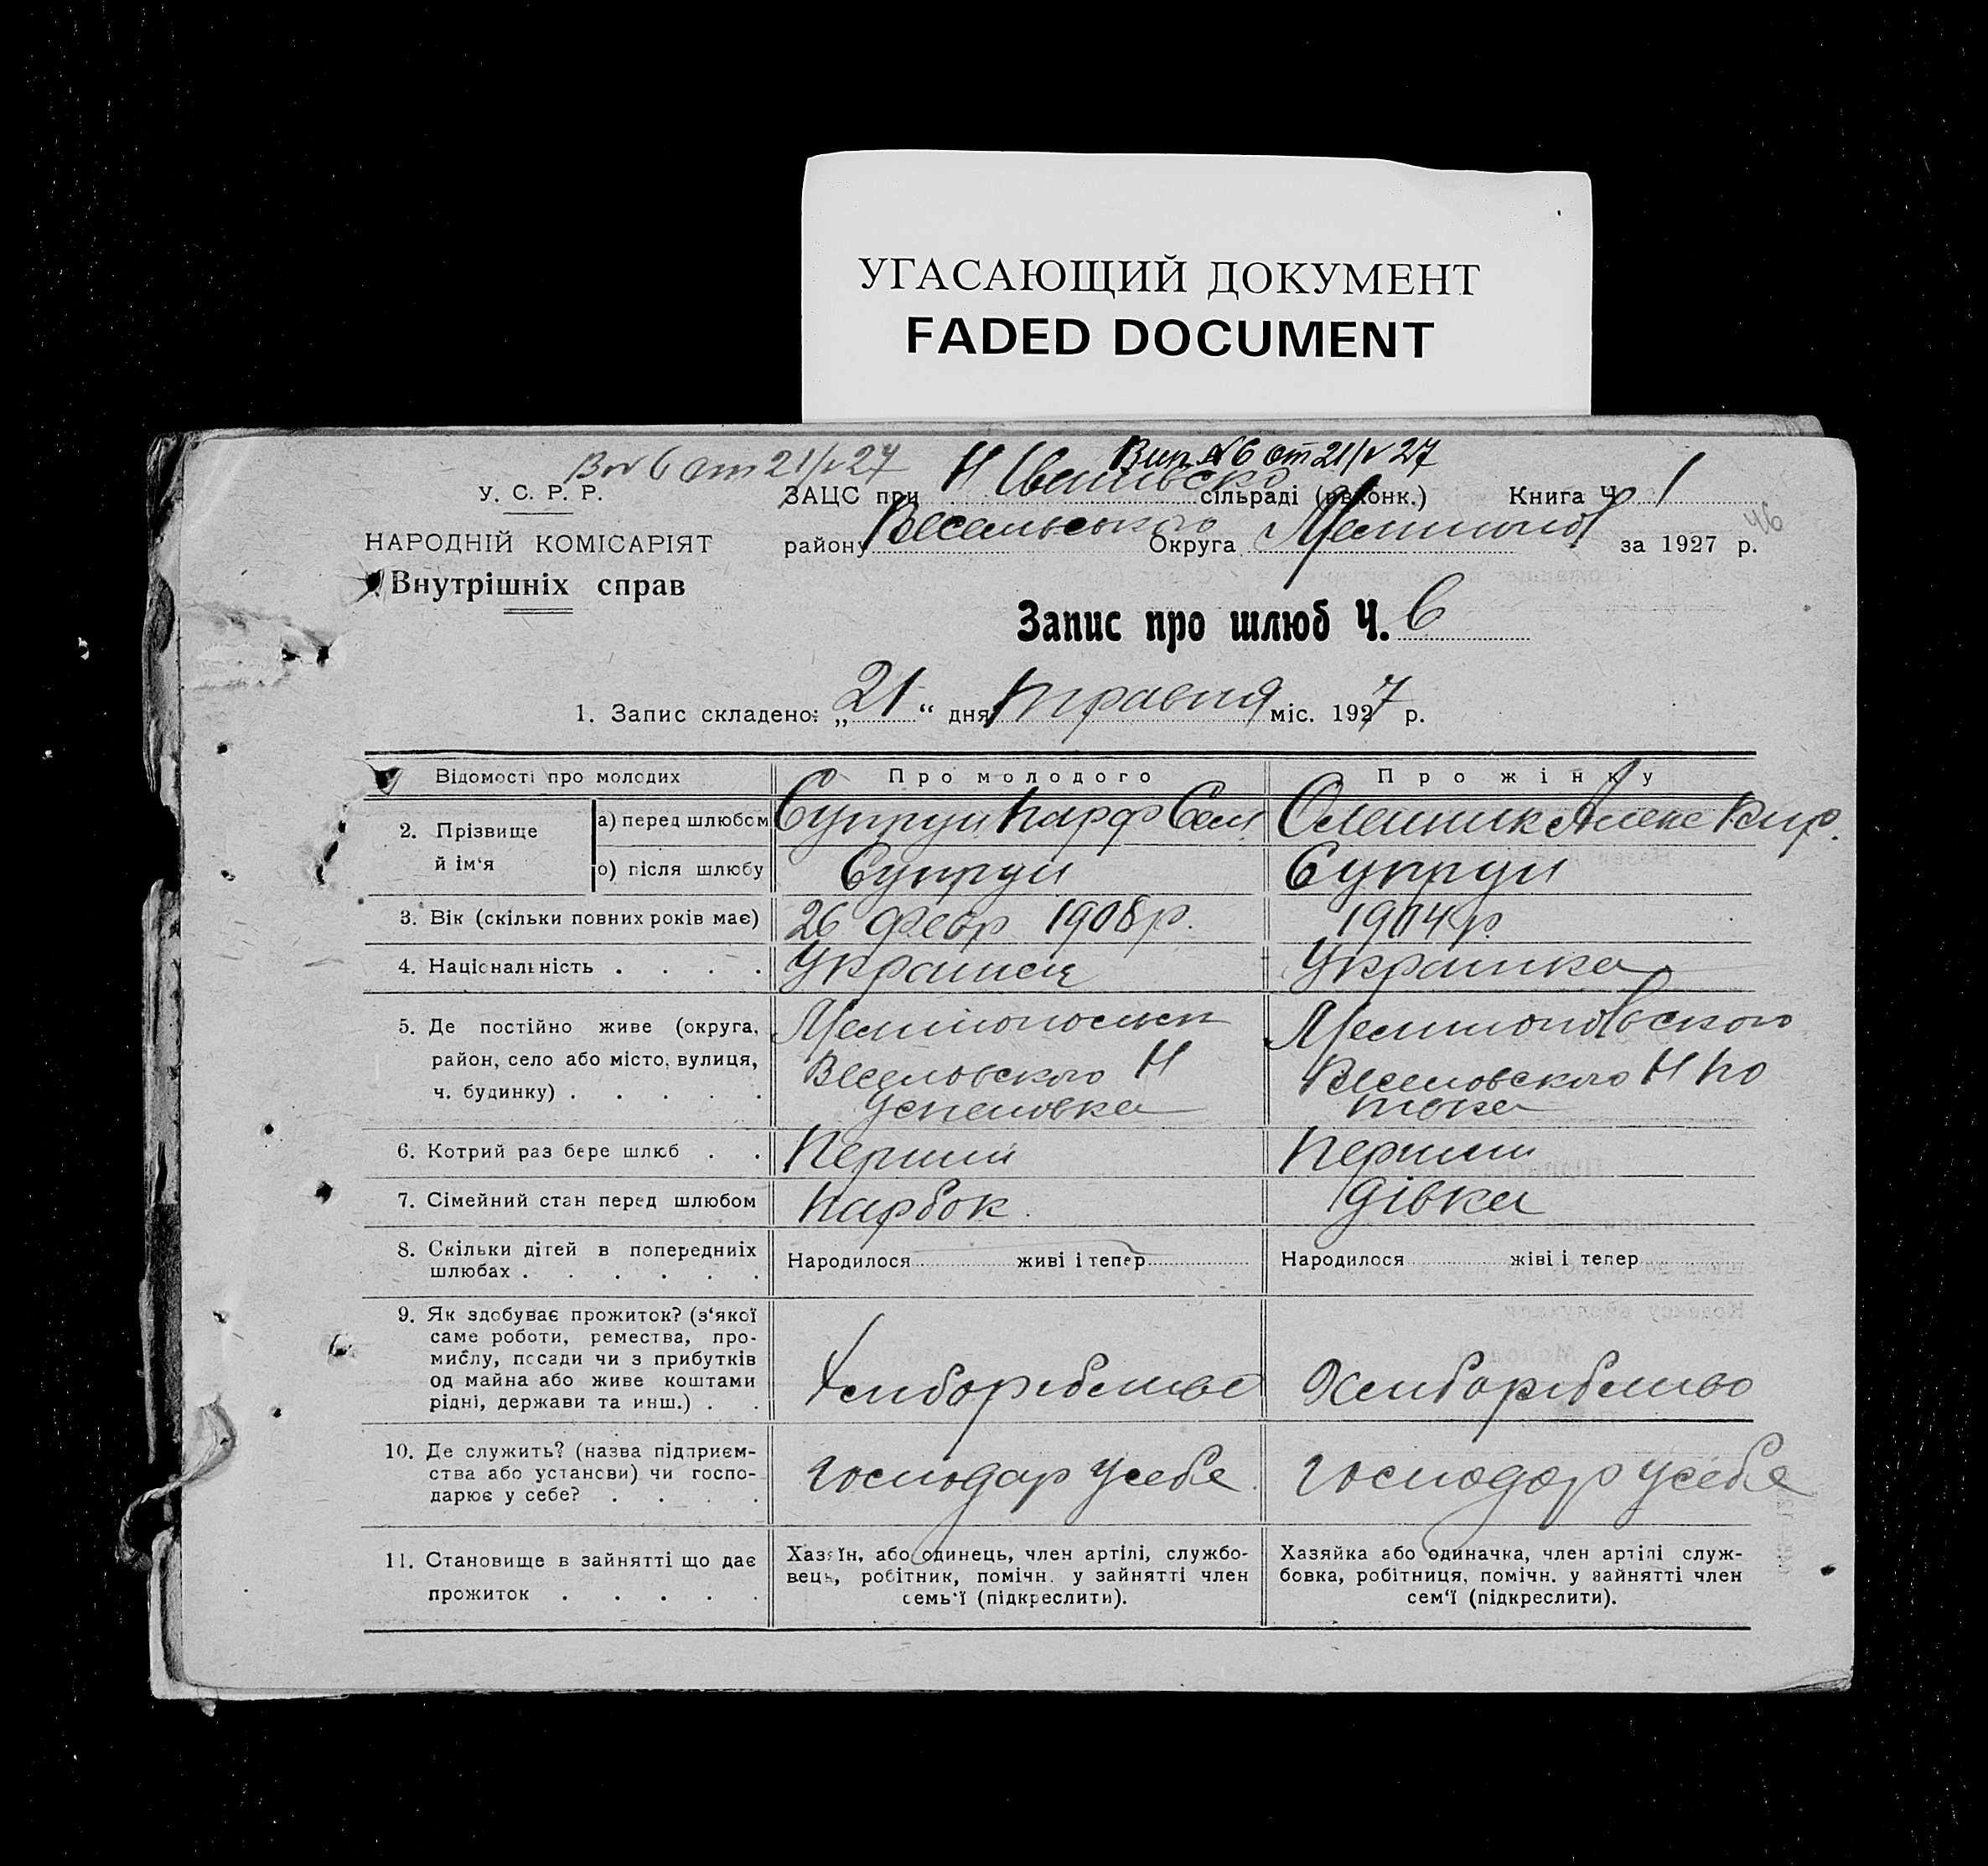 УГАСАЮЩИЙ ДОКУМЕНТ
FADED DOCUMENT
6 от 21/V 27
Вип №6 от 21/V 27
У. С. Р. Р.
ЗАЦС при Н сільраді (виконк.) Книга Ч 1
46
НАРОДНІЙ КОМІСАРІЯТ
району Весельського Округа Мелитопол за 1927 р.
Внутрішніх справ
Запис про шлюб Ч. 6
1. Запис складено: „21“ дня травня міс. 1927 р.
Відомості про молодих
Про молодого
Про жінку
2. Прізвище й ім‘я
а) перед шлюбом
Супрун Парф Сем
Олейник Алекс Кир.
о) після шлюбу
Супрун
Супрун
3. Вік (скільки повних років має)
26 Февр 1908 р.
1904 р.
4. Національність . . . .
Украинец
Украинка
5. Де постійно живе (округа,
район, село або місто, вулиця,
ч. будинку) . . . . .
Мелитопольск
Веселовского Н
Успеновка
Мелитоповского
Веселовского Н
6. Котрий раз бере шлюб . .
Перший
Перший
7. Сімейний стан перед шлюбом
Парбок.
Дівка
8. Скільки дітей в попередниіх
шлюбах . . . . . .
Народилося живі і тепер
Народилося жіві і тепер
9. Як здобуває прожиток? (з‘якої
саме роботи, ремества, про-
мислу, посади чи з прибутків
од майна або живе коштами
рідні, держави та инш.) . .
Хлиборобство
Хлиборобство
10. Де служить? (назва підприєм-
ства або установи) чи госпо-
дарює у себе? . . . .
господар у себе
господар у себе
11. Становище в зайнятті що дає
прожиток . . . . .
Хазяїн, або одинець, член артілі, службо-
вець, робітник, помічн. у зайнятті член
семь‘ї (підкреслити).
Хазяйка або одиначка, член артілі служ-
бовка, робітниця, помічн. у зайнятті член
сем‘ї (підкреслити).